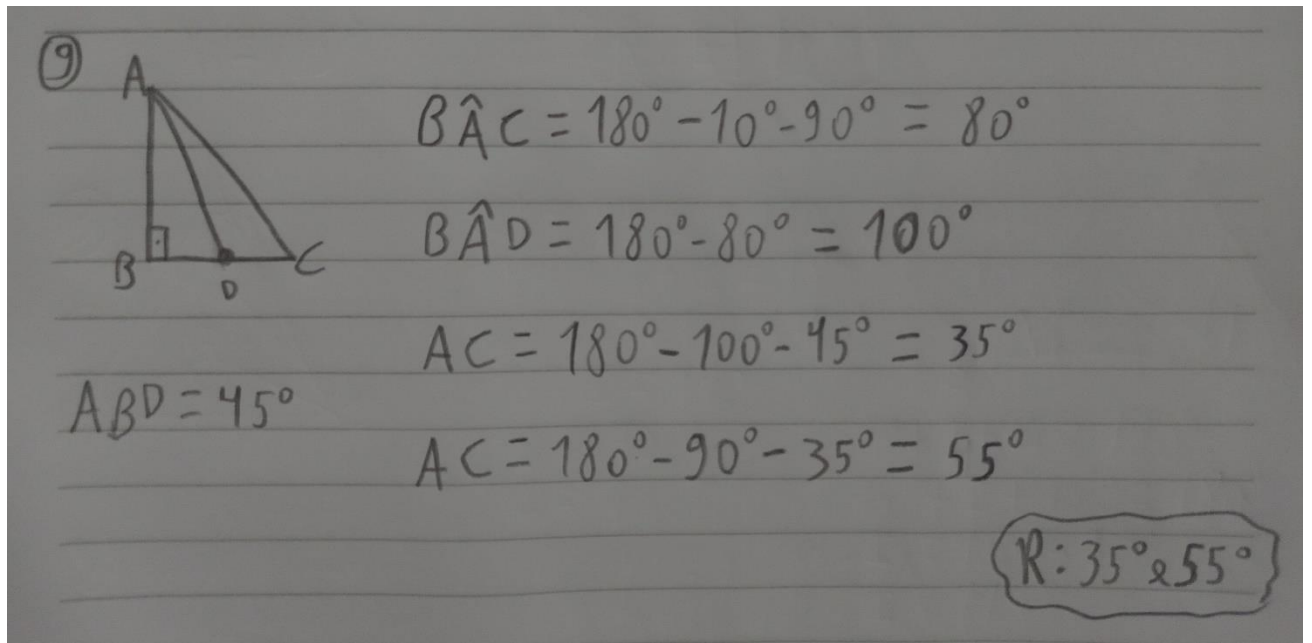 9
A
B
D
C
BÂC = 180° - 10° - 90° = 80°
BÂD = 180° - 80° = 100°
AC = 180° - 100° - 45° = 35°
ABD = 45°
AC = 180° - 90° - 35° = 55°
R: 35° e 55°